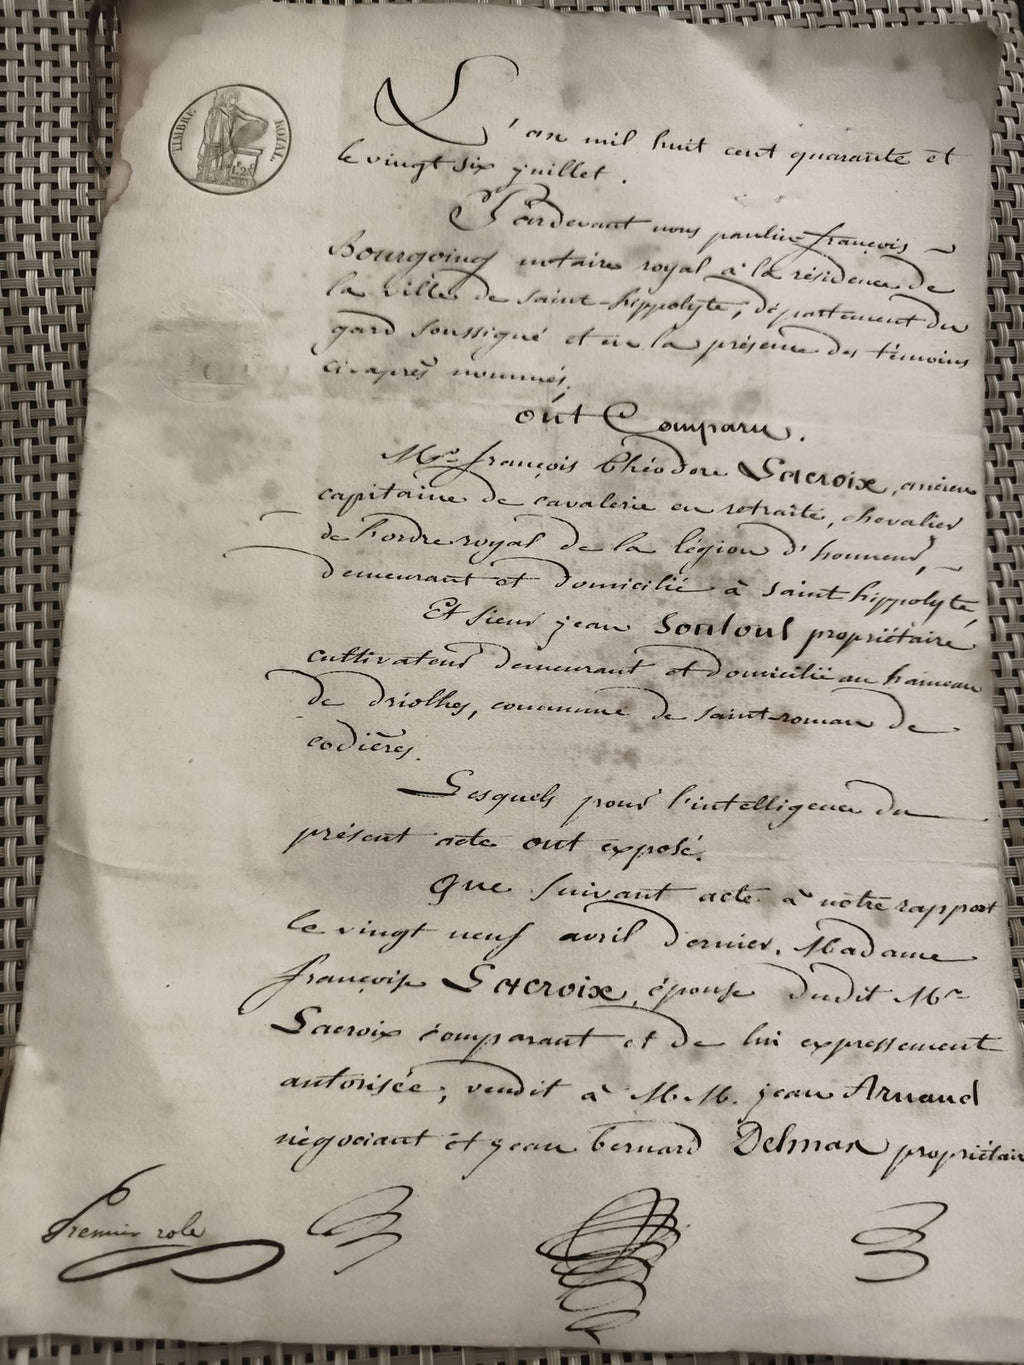 TIMBRE ROYAL
L'an mil huit cent quarante et
le vingt six juillet.
Pardevant nous paulin françois
Bourgoing notaire royal à la résidence de
la ville de saint-hippolyte, département du
gard soussigné et en la présence des témoins
ci-après nommés.
ont Comparu.
Mr. françois théodore Lacroix, ancien
capitaine de cavalerie en retraite, chevalier
de l'ordre royal de la légion d'honneur,
demeurant et domicilié à saint hippolyte,
Et sieur jean Souloul propriétaire
cultivateur demeurant et domicilié au hameau
de driolhes, commune de saint-roman de
codières.
Lesquels pour l'intelligence du
présent acte ont exposé.
Que suivant acte à notre rapport
le vingt neuf avril dernier, Madame
françoise Lacroix, épouse dudit Mr.
Lacroix comparant et de lui expressement
autorisée, vendit à M.M. jean Arnaud
négociant et jean bernard Delmas propriétaire
Premier role